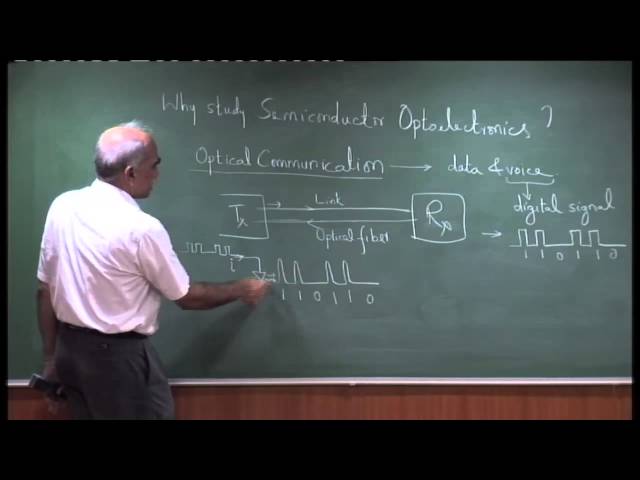 Why study Semiconductor Optoelectronics ?
Optical Communication → data & voice
digital signal
Tx Link Rx
Optical fiber
→ 1 1 0 1 1 0
i
1 1 0 1 1 0